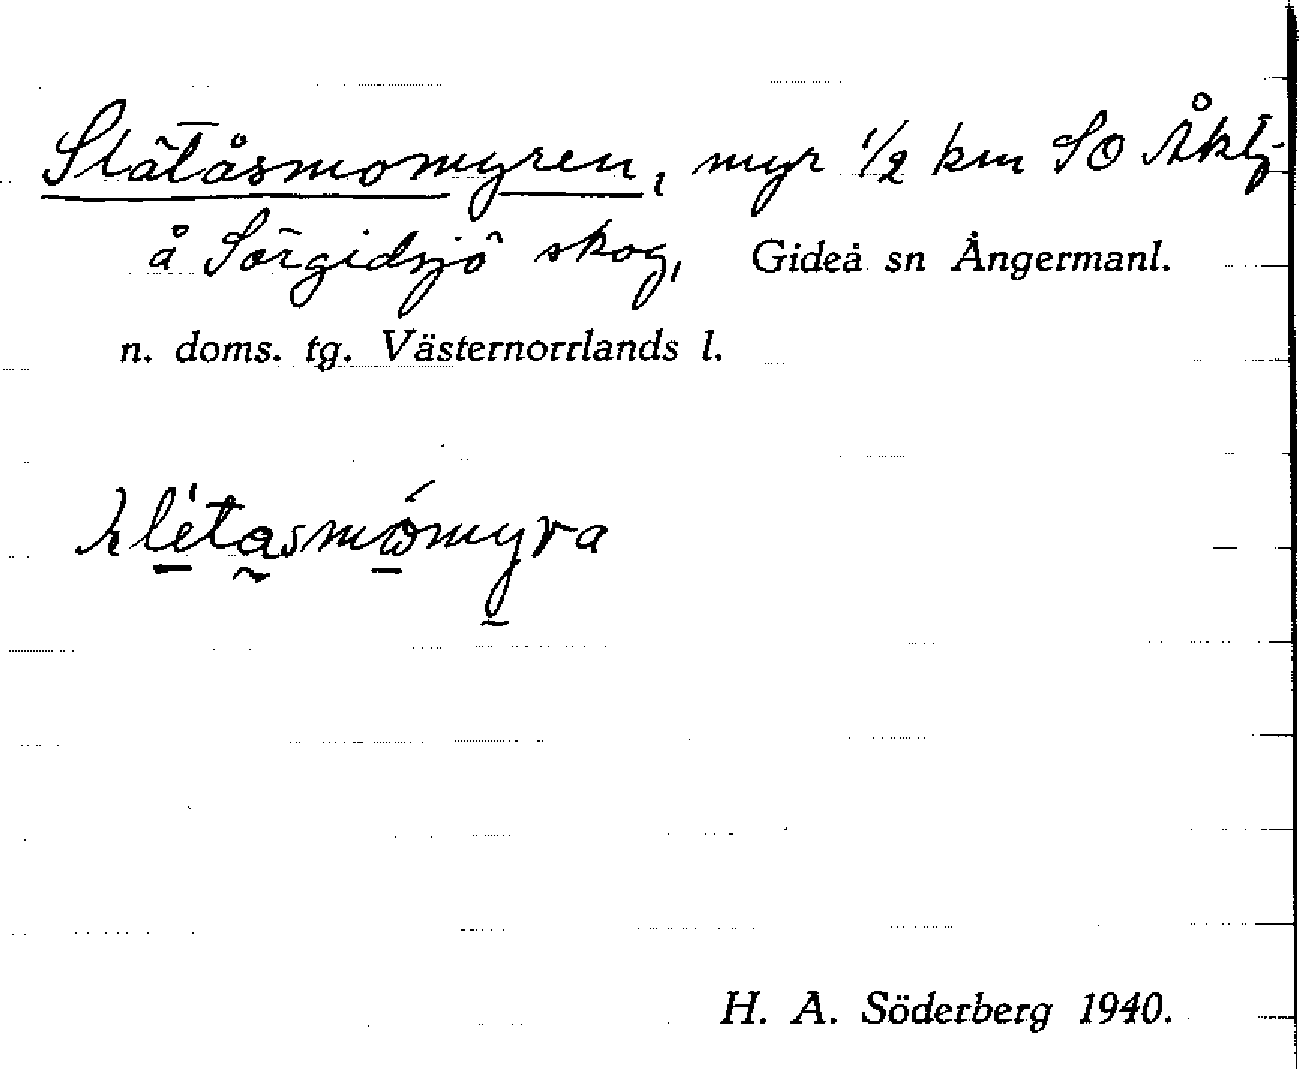 Slätåsmomyren, myr 1/2 km SO Åktj.
å Sörgidsjö skog, Gideå sn Ångermanl.
n. doms. tg. Västernorrlands l.
H. A. Söderberg 1940.